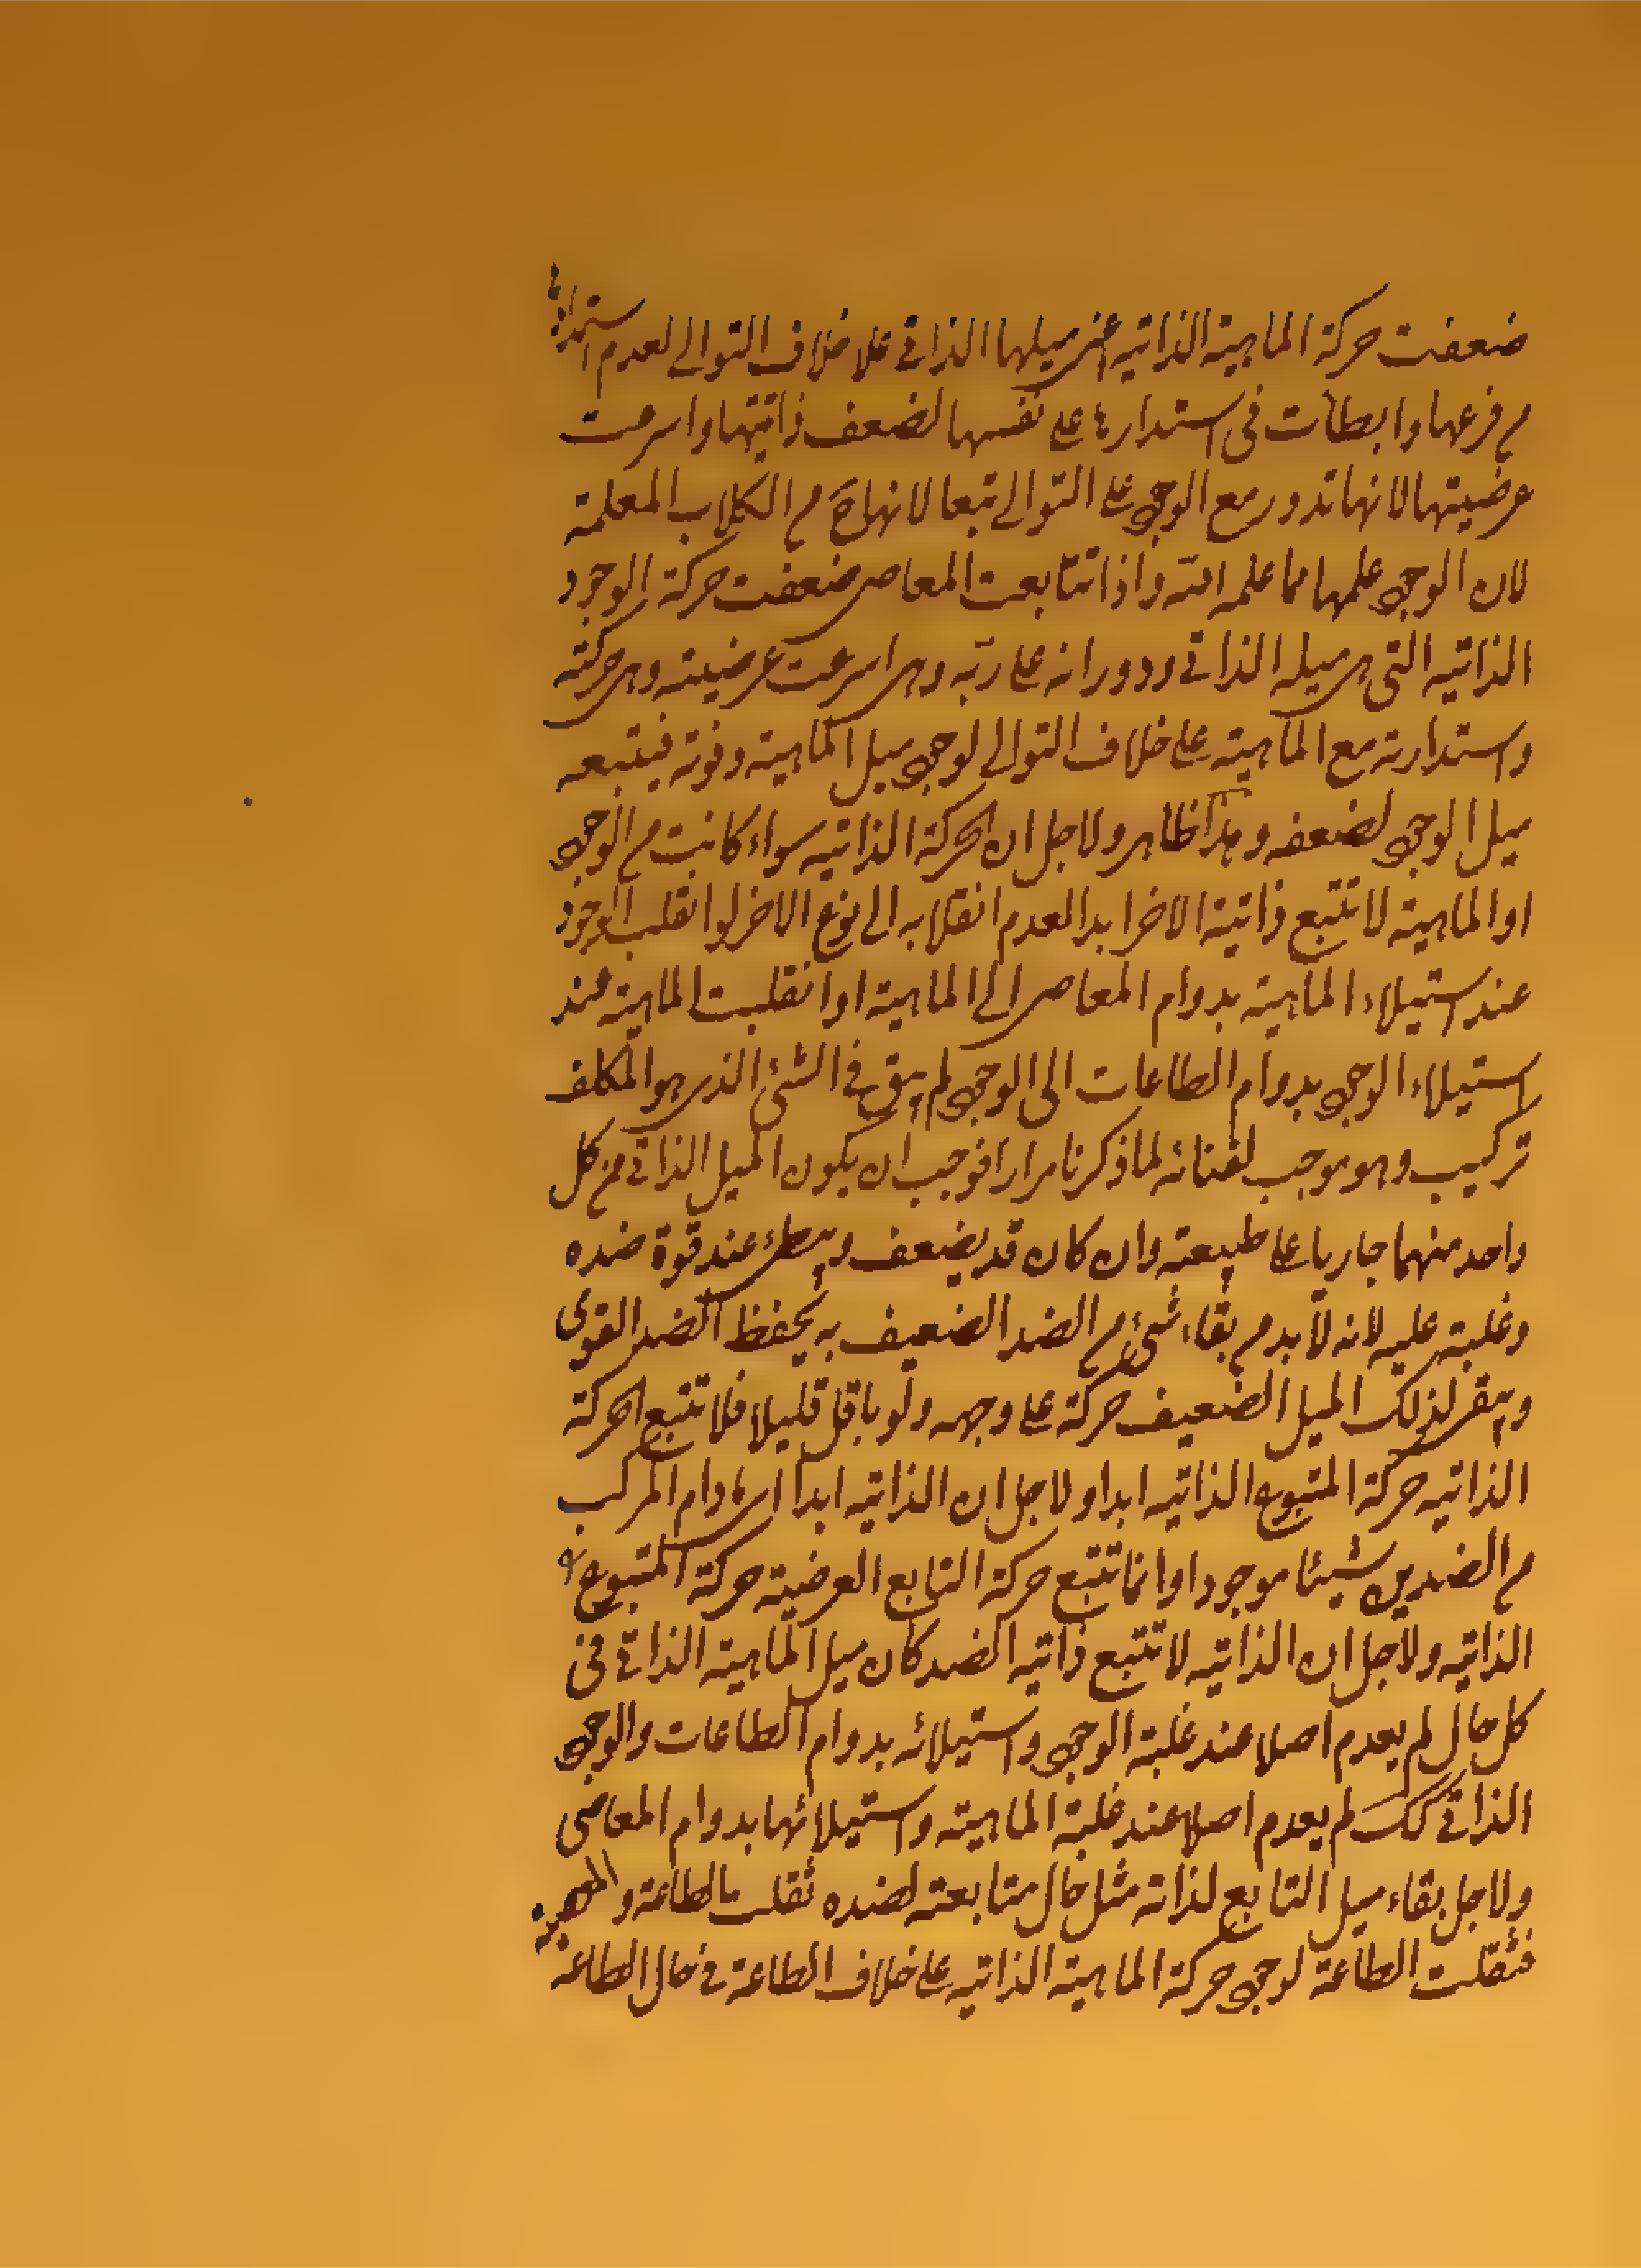 ضعفت حركة الماهية الذاتية اعنى ميلها الذاتي علا خلاف التوالي لعدم استمدادها
م فرعها وابطأت في استدارتها على نفسها لضعف ذاتيتها واسرعت
عرضيتها لانها تدور مع الوجى على التوالي تبعا لانها ح م الكلاب المعلمة
لان الوجى علمها مما علمه الله واذا تتابعت المعاصى ضعفت حركة الوجود
الذاتية التى هى ميله الذاتي ودورانه على ربه وهى اسرعت عرضيته وهى حركته
واستدارته مع الماهية على خلاف التوالي لوجى ميل الماهية وقوته فيتبعه
ميل الوجى لضعفه وهذا ظاهر ولاجل ان الحركة الذاتية سواء كانت م الوجى
او الماهية لا تتبع ذاتية الاخر ابدا لعدم انقلابه الى نوع الاخر لو انقلب الوجود
عند استيلاء الماهية بدوام المعاصى الى الماهية او انقلبت الماهية عند
استيلاء الوجى بدوام الطاعات الى الوجى لم يبق في الشئ الذى هو المكلف
تركيب وهو موجب لفنائه لما ذكرنا مرارا فوجب ان يكون الميل الذاتي من كل
واحد منهما جاريا على طبيعته وان كان قد يضعف ويبطئ عند قوة ضده
وغلبته عليه لانه لا بد م بقاء شئ م الضد الضعيف به يحفظ الضد القوى
ويبقى لذلك الميل الضعيف حركة على وجهه ولو باقل قليلا فلا تتبع الحركة
الذاتية حركة المتبوع الذاتية ابدا ولاجل ان الذاتية ابدا اى ما دام المركب
م الضدين شيئا موجودا وانما تتبع حركة التابع العرضية حركة المتبوع
الذاتية ولاجل ان الذاتية لا تتبع ذاتية الضد كان ميل الماهية الذاتي في
كل حال لم يعدم اصلا عند غلبة الوجى واستيلائه بدوام الطاعات والوجى
الذاتي كك لم يعدم اصلا عند غلبة الماهية واستيلائها بدوام المعاصى
ولاجل بقاء ميل التابع لذاته مثل حال متابعته لضده ثقلت الطاعة والمعصية
فثقلت الطاعة لوجى حركة الماهية الذاتية على خلاف الطاعة في حال الطاعة